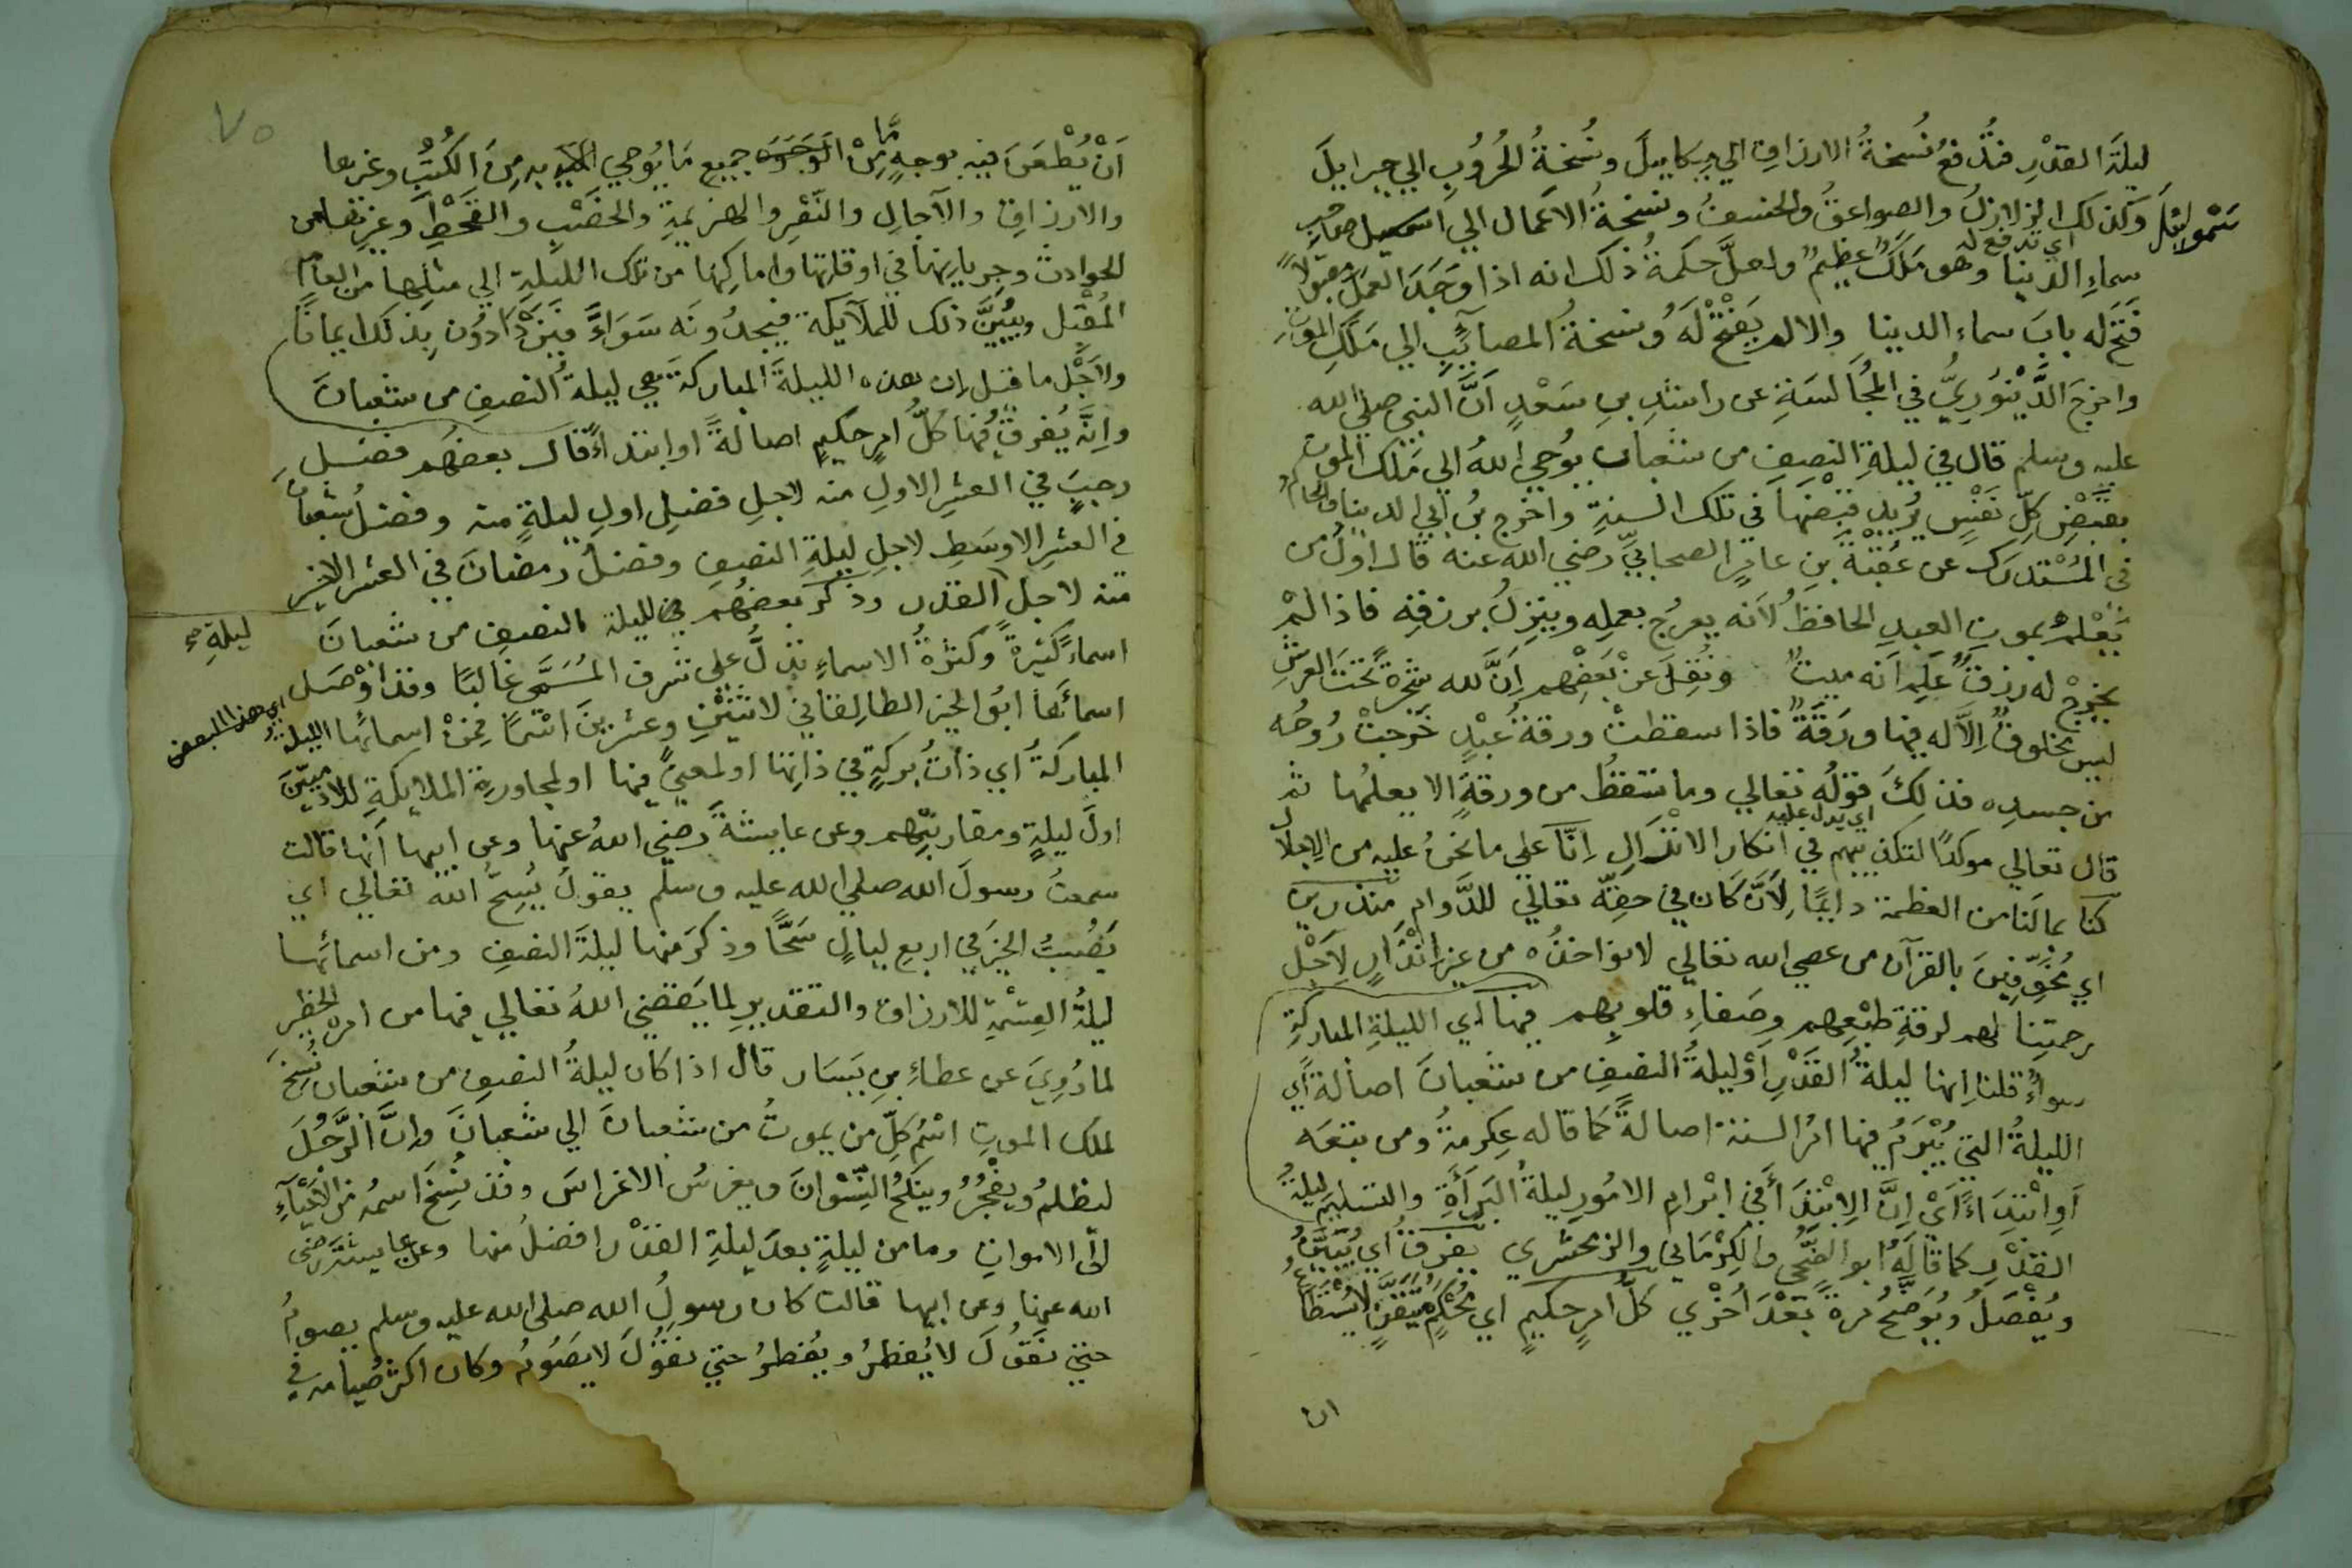 ليلةَ القدْرِ فتُدْفعُ نُسخةُ الارزاقِ الي ميكاييلَ ونُسْخةُ الحُرُوبِ الي جبراييلَ
وكذلك الزلازلُ والصواعقُ والخسفُ ونسخةُ الاعمال الي اسمعيل صاحبِ
اي تدفع له
سماءِ الدنيا وهو مَلَكٌ عظيمٌ ولعلَّ حكمةُ ذلك انه اذا وَجَدَ العملَ مقبولاً
فَتَحَ له بابَ سماء الدنيا والا لم يَفْتَحْ لَهُ ونسخةُ المصآئبِ الي مَلَكِ الموتِ
واخرجَ الدِّيْنَوَرِيُّ في المُجَالَسَةِ عن راشدِ بنِ سَعْدٍ اَنَّ النبي صلي الله
عليه وسلم قال في ليلةِ النصِفِ من شعبان يُوحِي اللهُ الي مَلَك الموتِ
بقَبْضِ كلِّ نَفْسٍ يُريدُ قبْضَها في تلك السنةِ واخرج بنُ ابي الدنيا والحاكمُ
في المُسْتدرك عن عُقبَةَ بنِ عامرٍ الصحابيِّ رضي الله عنه قال اولُ من
يَعْلَمُ بموتِ العبدِ الحافظُ لأنه يعرُج بعملِه وينزِلُ برزقِه فاذا لم
يخرجْ له رزقٌ عَلِمَ اَنه ميتٌ ونُقِلَ عنْ بَعْضِهم اِنَّ لله شجرةً تحْتَ العرشِ
ليس مخلوقٌ اِلاَّ له فيها ورَقَةٌ فاذا سقطتْ ورقةُ عَبْدٍ خَرَجتْ رُوحُه
من جسدِه فذلِكَ قولُه تعالي وما تسقطُ من ورقةٍ الا يعلمُها ثم
اي يدل عليه
قال تعالي موكدًا لتكذيبهم في انكار الانْذارِ اِنَّا علي ما نحنُ عليه من الاجلال
كنا بما لَنا من العظمة دايمًا لِاَنَّ كان في حقِّه تعالي للدَّوامِ منذرين
اي مُخَوِّفينَ بالقرآن من عصي الله تعالي لا نواخذُه من غير انْذارٍ لِاَجْل
رحمتِنا لهم لرقةِ طبْعِهم وصَفاءِ قلوبِهم فيها اي الليلةِ المباركةِ
سواءٌ قلنا اِنها ليلةُ القَدْرِ اوْ ليلةُ النصِفِ من شعبانَ اصالةً اي
الليلةُ التي يُبْرَمُ فيها امرُ السنة اصالةً كما قاله عِكرمةُ ومن تبعَه
اَوِ ابْتِدَاءً اَيْ اِنَّ الاِبْتِدَأَ في ابْرامِ الامُورِ ليلةُ البَرأَةِ والتسليم ليلةُ
القدْرِ كما قالَه ابو الضُّحَي والكِرْمَاني والزمخشري يُفرقُ اي يُبَيَّنُ
ويُفْصَلُ ويُوَضَّحُ مرةً بَعْدَ اُخْرَي كلُّ امرٍ حكيمٍ اي مُحْكمٍ مُتْقَنٍ لا يُسْتَطَاعُ
ان
٧٥
اَنْ يُطْعَنَ فيه بوجهٍ مَّا مِنَ الوجوه جميع مَا يُوحي اليه به مِنَ الكُتُبِ وغيرها
والارزاقِ والآجالِ والنَّصْرِ والهزيمةِ والخَصْبِ والقَحْطِ وغيرِها من
الحوادث وجرياتِها في اوقاتِها واماكِنِها من تلك الليلةِ الي مثلِها من العام
المُقْبِل ويُبَيَّنُ ذلك للملآيكة فيجدُونَه سَوَاءً فيَزْدَادُون بذلك ايمانًا
ولاَجْل ما قيل اِن هذه الليلةَ المباركةَ هي ليلةُ النصِفِ من شعبانَ
واِنَّه يُفرقُ فيها كلُّ امرٍ حكيمٍ اصالةً او ابتداءً قال بعضهم فضلُ
رجبٍ في العشرِ الاولِ منه لاجلِ فضلِ اولِ ليلةٍ منه وفضلُ شعبانَ
في العشرِ الاوسَطِ لاجلِ ليلةِ النصِفِ وفضلُ رمضانَ في العشر الاخير
منه لاجلِ القدر وذكرَ بعضُهم لليلة النصِفِ من شعبانَ
ليلةِ صح
اسماءً كثيرةً وكثرةُ الاسماءِ تدلُّ علي شرف المُسَمَّي غالبًا وقد اوْصَل
اي هذا البعض
اسمائَها ابُو الخير الطالِقاني لاثنَيْنِ وعشرينَ اسْمًا فمنْ اسمائها الليلةُ
المباركةُ اي ذاتُ بركةٍ في ذاتِها او لمعنيً فيها او لمجاورةِ الملايكةِ للادميِّينَ
اولَ ليلةٍ ومقاربتِهم وعن عايشةَ رضي اللهُ عنها وعن ابيها اَنها قالت
سمعتُ رسولَ الله صلي الله عليه وسلم يقولُ يُسِحُّ اللهُ تعالي اي
يَصُبُّ الخيرَ في اربعِ ليالٍ سَحًّا وذكرَ منها ليلةَ النصِفِ ومن اسمائها
ليلةُ القِسْمَةِ للارزاق والتقديرِ لما يَقضي اللهُ تعالي فيها من امره الخطيرِ
لما رُوِيَ عن عطاءِ بن يَسَار قال اذا كان ليلةُ النصِفِ من شعبان نُسِخَ
لملك الموتِ اسْمُ كلِّ مَن يموتُ من شعبانَ الي شعبانَ وانَّ الرَّجُلَ
ليظلمُ ويفْجُرُ وينكحُ النِّسْوانَ ويغرسُ الاغراسَ وقد نُسِخَ اسمُه من الاَحْيَآءِ
الي الاموات وما من ليلةٍ بعدَ ليلةِ القدْر افضلُ منها وعن عايشةَ رضي
الله عنها وعن ابيها قالت كان رسولُ الله صلي الله عليه وسلم يصومُ
حتي نقولَ لا يُفطرُ ويُفطرُ حتي نقولَ لا يَصُومُ وكان اكثرُ صيامه في